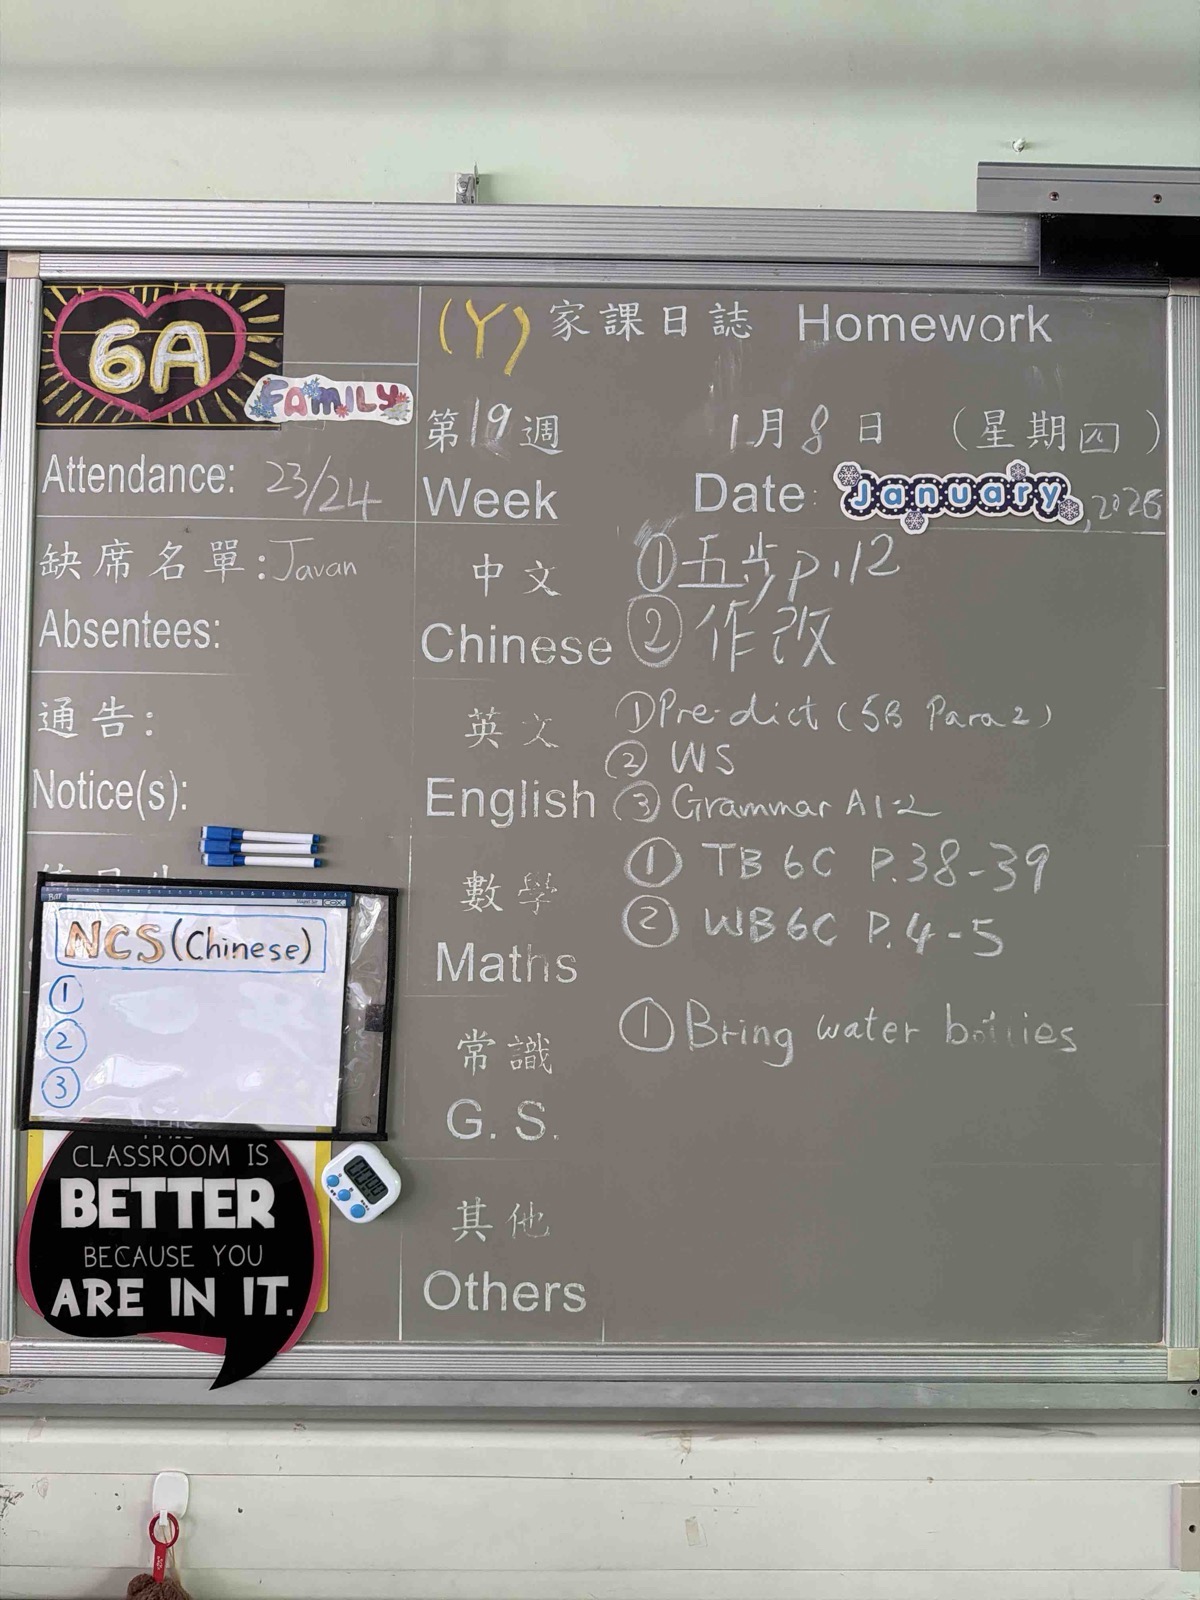 6A
FAMILY
Attendance: 23/24
缺席名單: Javan
Absentees:
通告:
Notice(s):
NCS (Chinese)
①
②
③
CLASSROOM IS
BETTER
BECAUSE YOU
ARE IN IT.
(Y) 家課日誌 Homework
第19週 1月8日 (星期四)
Week Date: January, 2026
中文 ① 五步 p.12
Chinese ② 作改
英文 ① Pre-dict (5B Para 2)
② WS
English ③ Grammar A1-2
數學 ① TB 6C P.38-39
② WB 6C P.4-5
Maths
常識 ① Bring water bottles
G. S.
其他
Others